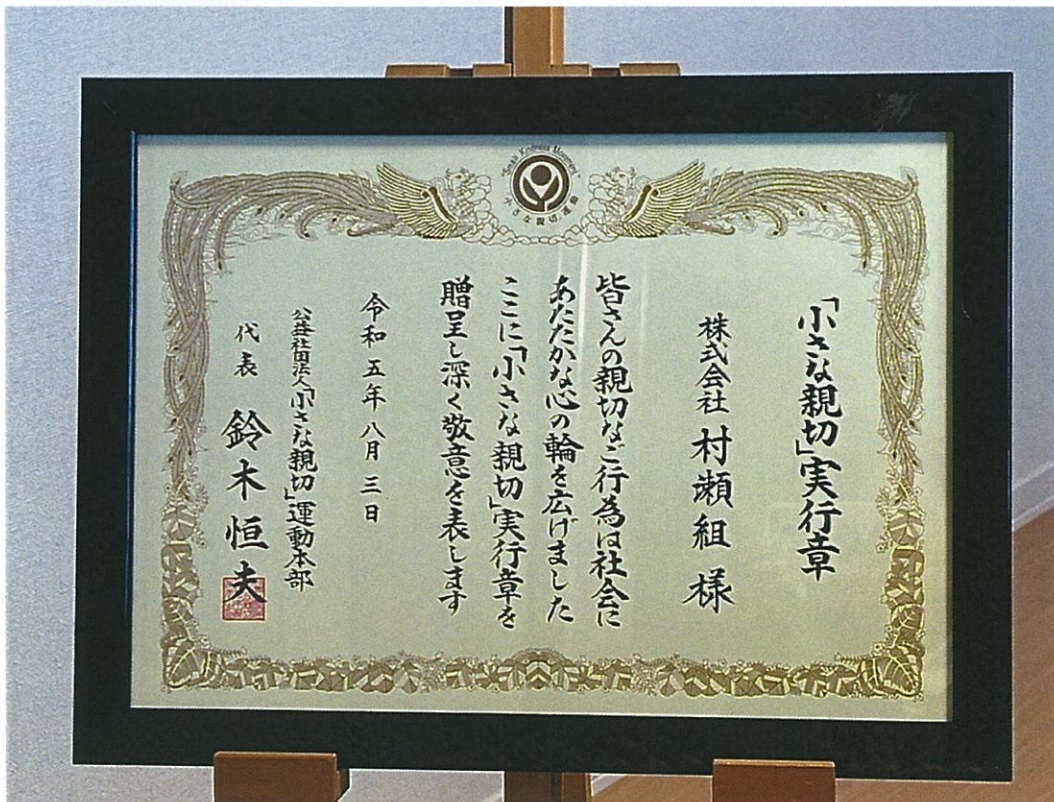 "Small Kindness Movement"
小さな親切運動
「小さな親切」実行章
株式会社 村瀬組 様
皆さんの親切なご行為は社会に
あたたかな心の輪を広げました
ここに「小さな親切」実行章を
贈呈し深く敬意を表します
令和五年八月三日
公益社団法人「小さな親切」運動本部
代表 鈴木恒夫